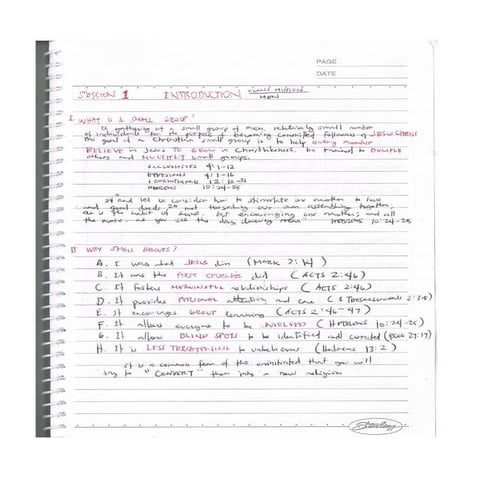 PAGE
DATE
SESSION 1 INTRODUCTION
MEN
I. WHAT IS A SMALL GROUP?
A gathering of a small group of men, relatively small number
of individuals for the purpose of becoming committed followers of JESUS CHRIST
The goal of a Christian small group is to help every member
BELIEVE in Jesus TO GROW in Christlikeness, be trained to DISCIPLE
others and MULTIPLY small groups.
ECCLESIASTES 4:9-12
EPHESIANS 4:1-16
I CORINTHIANS 12:12-31
HEBREWS 10:24-25
24 And let us consider how to stimulate one another to love
and good deeds 25 not forsaking our own assembling together,
as is the habit of some, but encouraging one another; and all
the more, as you see the day drawing near HEBREWS 10:24-25
II. WHY SMALL GROUPS?
A. It was what JESUS did (MARK 3:14)
B. It was the FIRST CHURCHES did (ACTS 2:46)
C. It fosters MEANINGFUL relationships (ACTS 2:46)
D. It provides PERSONAL attention and care (I THESSALONIANS 2:7-8)
E. It encourages GROUP learning (ACTS 2:46-47)
F. It allows everyone to be INVOLVED (HEBREWS 10:24-25)
G. It allow BLIND SPOTS to be identified and corrected (PROV 27:17)
H. It is LESS THREATENING to unbelievers (Hebrews 13:2)
It is a common fear of the uninitiated that you will
try to "CONVERT" them into a new religion
Sterling